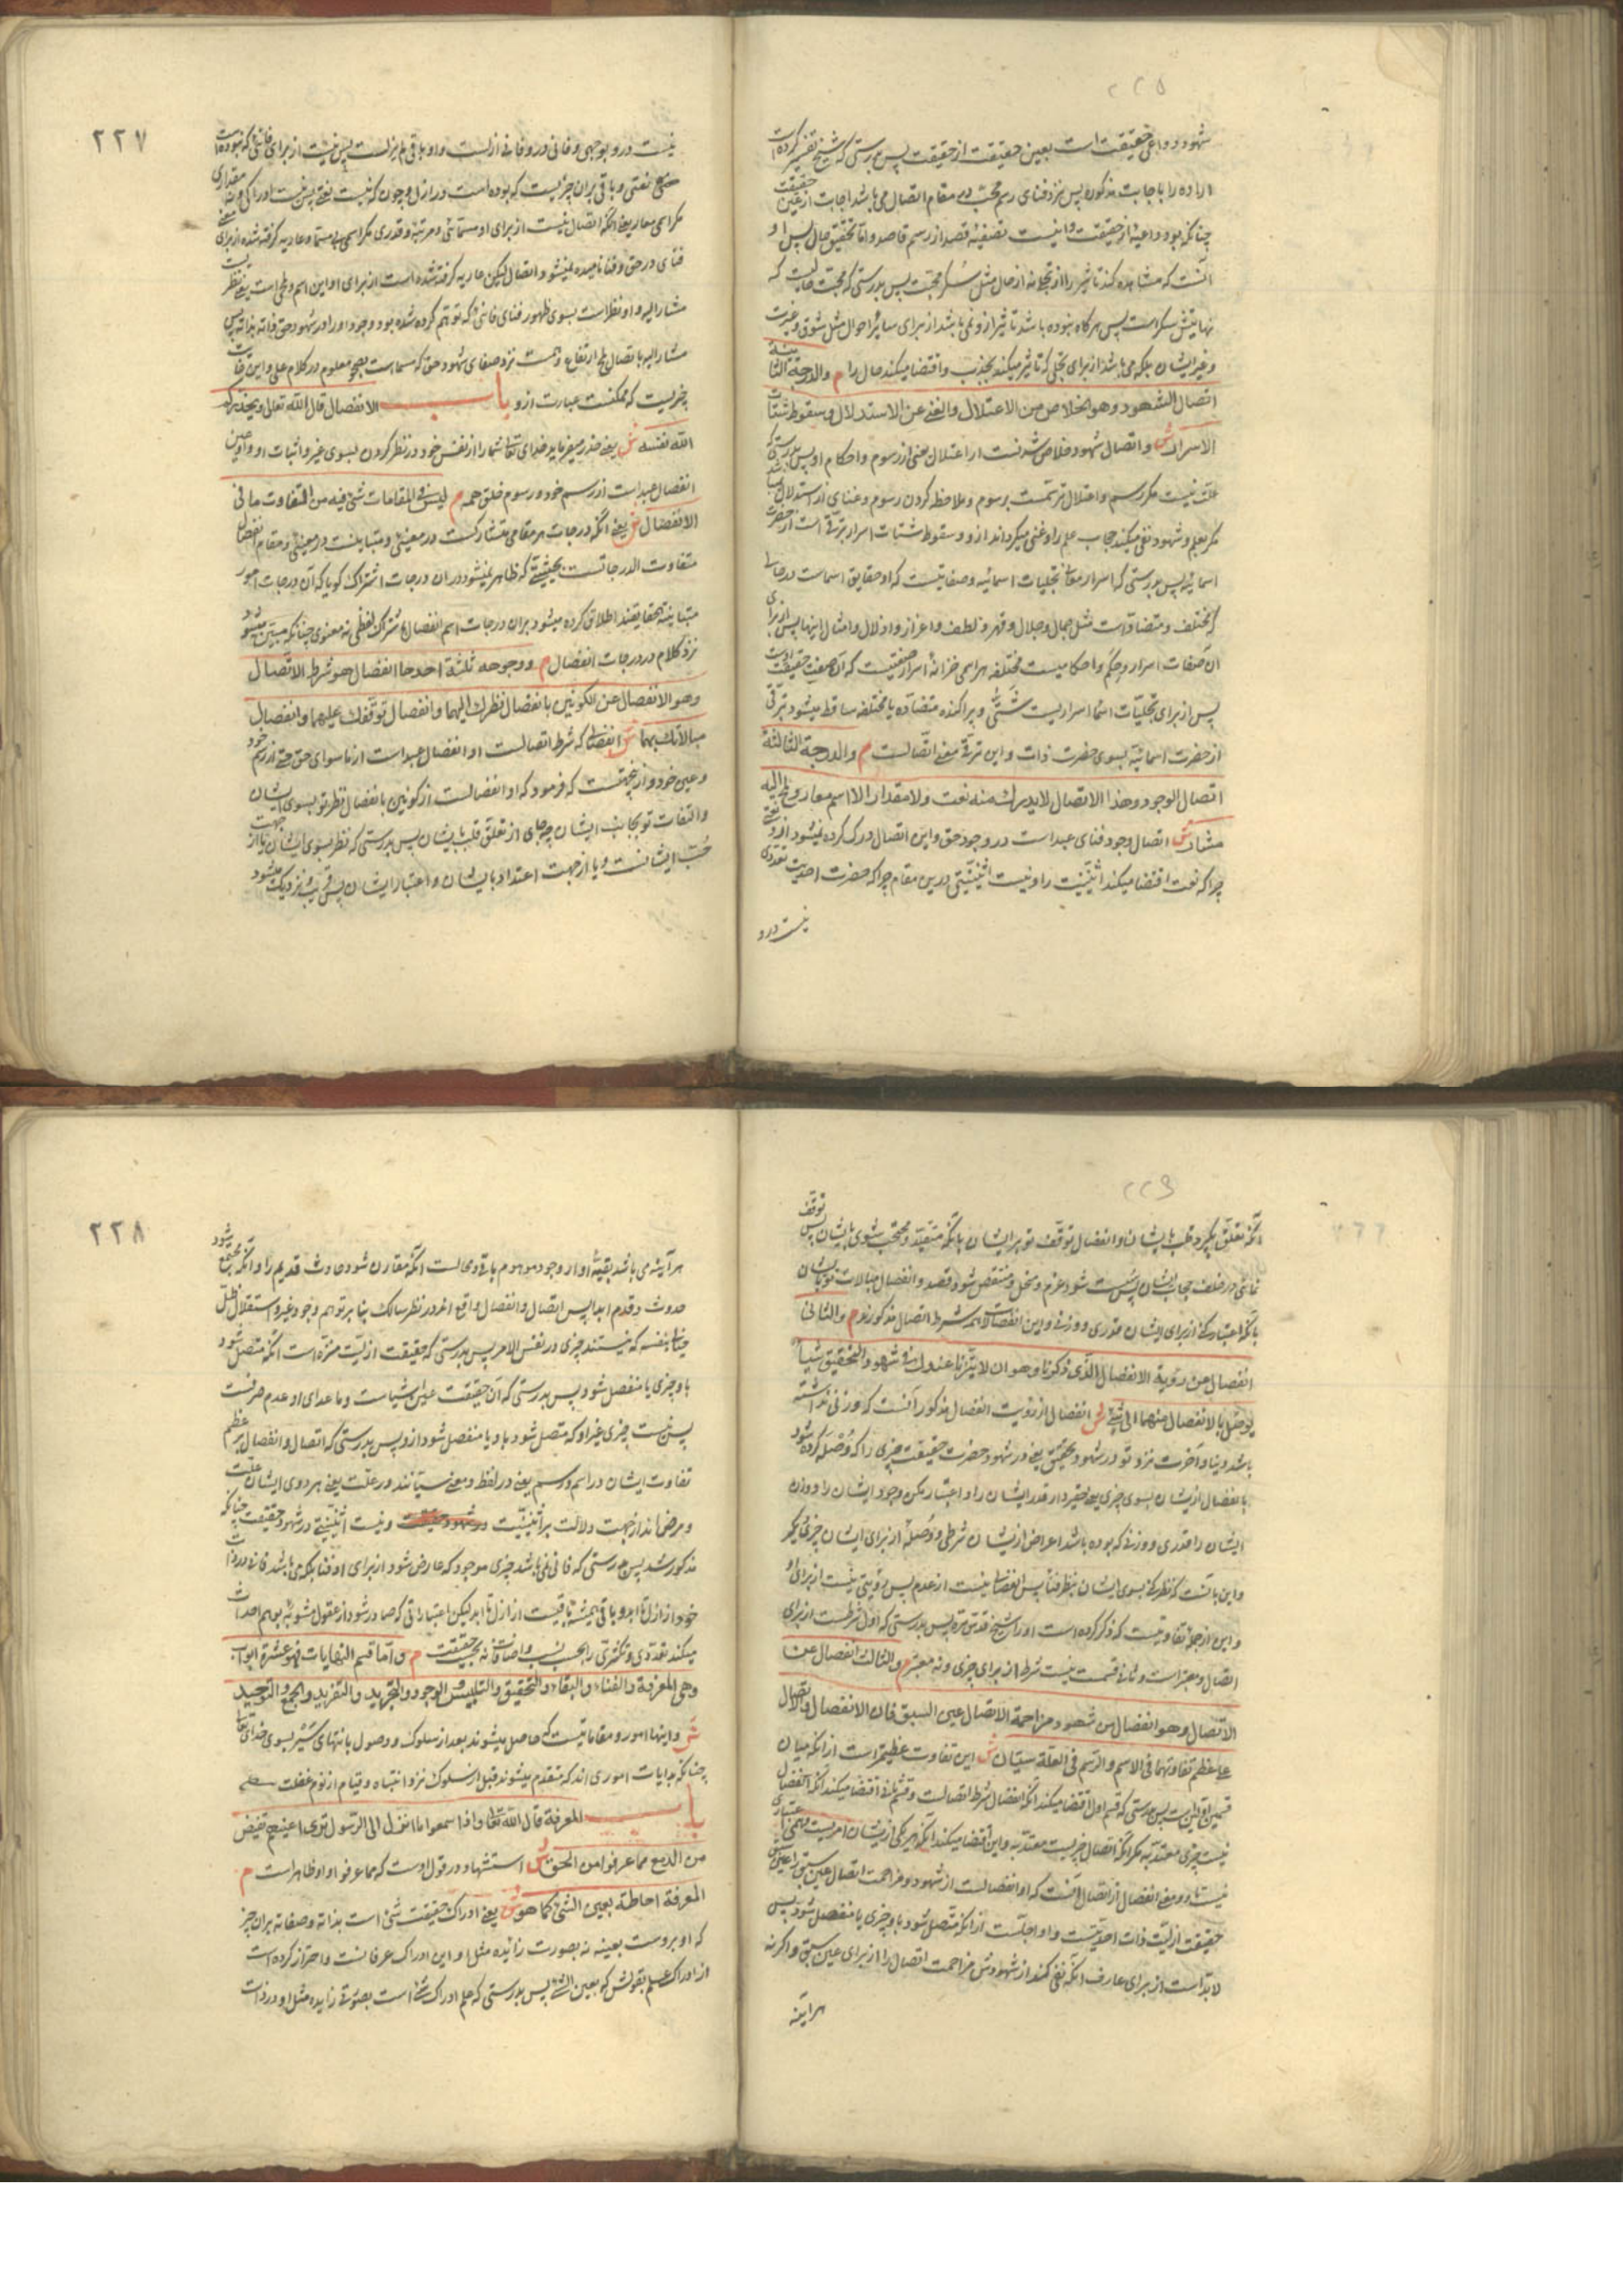 شهود و داعی حقیقت است بعین حقیقت از حقیقت پس بدرستی که شیخ تفسیر کرده است
اراده را باجابت مذکوره پس نزد فنای رسم محبّ در مقام اتصال می باشد اجابت از عین حقیقت
چنانکه بود داعیه از حقیقت و نیست تصفیهٔ قصد از رسم قاصد و اما تحقیق حال پس او
آنست که مشاهده کند تاثیر را از تجلی نه از حال مثل سکر محبت پس بدرستی که محبت حالیست که
نهایتش سکر است پس هرگاه بوده باشد تاثیر ازو نمی باشد از برای سایر احوال مثل شوق و غیرت
و غیر ایشان بلکه می باشد از برای تجلی که تاثیر میکند بجذب و اقتضا میکند حال را م والدرجة الثانیة
اتصال الشهود وهو الخلاص من الاعتلال والغنی عن الاستدلال وسقوط شتات
الاسرار ش و اتصال شهود خلاص شدنست از اعتلال یعنی از رسوم و احکام او پس بدرستی که
علت نیست مگر رسم و اعتلال ترسّمست برسوم و ملاحظه کردن رسوم و غنای از استدلال
مگر بعلم و شهود نفی میکند حجاب علم را و غنی میگرداند ازو و سقوط شتات اسرار ترقی است از حضرت
اسمائیه پس بدرستی که اسرار معانی تجلیات اسمائیه و صفاتیست که او حقایق اسماست در حالی
که مختلف و متضاد است مثل جمال و جلال و قهر و لطف و اعزاز و اذلال و امثال اینها پس از برای
آن صفات اسرار و حکم و احکامیست مختلفه هر اسمی خزانهٔ اسرار صفتیست که آن صفت حقیقت اوست
پس از برای تجلیات اسما اسراریست شتّی و پراکنده متضاده یا مختلفه ساقط میشود بترقی
از حضرت اسمائیه بسوی حضرت ذات و این ترقی معنی اتصالست م والدرجة الثالثة
اتصال الوجود وهذا الاتصال لا یدرك منه نعت ولا مقدار الا اسم معار ولمح الیه
مشار ش اتصال وجود فنای عبد است در وجود حق و این اتصال درک کرده نمیشود ازو نعتی
چرا که نعت اقتضا میکند اثنینیت را و نیست اثنینیتی درین مقام چرا که حضرت احدیت تعددی
نیست درو
۲۲۷
نیست درو بوجهی و فانی درو فانی از ازلست و او باقی لم یزلست پس نیست از برای فانی که نبوده است
هیچ نعتی و باقی بر آن چیزیست که بوده است در ازل و چون که نیست نعتی پس نیست او را کمی و نه مقداری
مگر اسمی معار یعنی آنکه اتصال نیست از برای او مسمائی و مرتبهٔ و قدری مگر اسمی بی مسما و عاریه گرفته شده از برای
فنای در حق و فنا نامیده نمیشود اتصال لیکن عاریه گرفته شده است از برای او این اسم و لمحی است یعنی نظر
مشار الیه و او نظر است بسوی ظهور فنای فانی که توهم کرده شده بود وجود او را در شهود حق ذاته بذاته پس
مشار الیه با اتصال لمح ارتفاع وهمست نزد صفای شهود حق که مسماست بصحو معلوم در کلام علی و این غایت
چیزیست که ممکنست عبارت ازو باب الانفصال قال الله تعالی و یحذرکم
الله نفسه ش یعنی حذر میفرماید خدای تعالی شما را از نفس خود در نظر کردن بسوی غیر و اثبات او و او عین
انفصال عبد است از رسم خود و رسوم خلق همه م لیس فی المقامات شئ فیه من التفاوت ما فی
الانفصال ش یعنی آنکه درجات هر مقامی متشارکست در معنی و متباینست در معنی و مقام انفصال
متفاوت الدرجاتست بحیثیتی که ظاهر نمیشود در آن درجات اشتراک گویا که آن درجات امور
متباینة الحقایقند اطلاق کرده میشود بر آن درجات اسم انفصال باشتراک لفظی نه معنوی چنانکه مبیّن میشود
نزد کلام در درجات انفصال م ووجوهه ثلثة احدها انفصال هو شرط الاتصال
وهو الانفصال عن الکونین بانفصال نظرك الیهما وانفصال توقفك علیهما وانفصال
مبالاتك بهما ش انفصالی که شرط اتصالست او انفصال عبد است از ما سوای حق حتی از رسم خود
و عین خود و از نجهتست که فرمود که او انفصالست از کونین بانفصال نظر تو بسوی ایشان
و التفات تو بجانب ایشان چه جای از تعلق قلب بایشان پس بدرستی که نظر بسوی ایشان یا از جهت
حبّ ایشانست و یا از جهت اعتداد بایشان و اعتبار ایشان پس قریب نزدیک میشود
آنکه تعلق گیرد قلب بایشان و انفصال توقف تو بر ایشان بآنکه متقید و محتجب شوی بایشان پس توقف
نمائی در خلف حجاب ایشان پس سست شود عزم و منحل و منتقض شود قصد و انفصال مبالات تو بایشان
بآنکه اعتبار کنی از برای ایشان قدری و وزنی و این انفصالات همه شرط اتصال مذکورند م والثانی
انفصال عن رؤیة الانفصال الذی ذکرنا وهو ان لا یتزنا عندك فی شهود التحقیق شیئا
یوصل بالانفصال منهما الی شئ ش انفصال از رؤیت انفصال مذکور آنست که وزنی نداشته
باشد دنیا و آخرت نزد تو در شهود تحقیق یعنی در شهود حضرت حقیقت چیزی را که وُصله کرده شود
بانفصال ازیشان بسوی چیزی یعنی حقیر دار قدر ایشان را و اعتبار مکن وجود ایشان را و وزن
ایشان را قدری و وزنی که بوده باشد اعراض ازیشان شرطی و وُصلهٔ از برای ایشان چیزی دیگر
و این بآنست که نظر کنی بسوی ایشان بنظر فنا پس انفصالی نیست از عدم پس رؤیتی نیست از برای او
و این از جملهٔ تفاوتیست که ذکر کرده است او را شیخ قدس سره پس بدرستی که اول شرطست از برای
اتصال و معتبر است و ثانی قسمت نیست شرط از برای چیزی و نه معتبر م والثالث انفصال عن
الاتصال وهو انفصال من شهود مزاحمة الاتصال عین السبق فان الانفصال والاتصال
علی عظم تفاوتهما فی الاسم والرسم فی العلة سیان ش این تفاوت عظیمتر است از آنکه میان
قسمین اولین است پس بدرستی که قسم اول اقتضا میکند آنکه انفصال شرط اتصالست و قسم ثانی اقتضا میکند آنکه انفصال
نیست چیزی معتدّ به مگر آنکه اتصال چیزیست معتدّ به و این اقتضا میکند آنکه هر یکی ازیشان امریست وهمی اعتباری
حقیقت ازلیت ذات احدیتست و او اجلّست از آنکه متصل شود باو چیزی یا منفصل شود پس
لابدّ است از برای عارف آنکه نفی کند از شهودش مزاحمت اتصال را از برای عین سبق و اگر نه
هر آینه
۲۲۸
هر آینه می باشد بقیهٔ او از وجود موهوم باقی و محالست آنکه مقارن شود حادث قدیم را و آنکه مجتمع شود
حدوث و قدم ابدا پس اتصال و انفصال واقع اند در نظر سالک بنا بر توهم وجود غیر و استقلال ظلّ
خیالی بنفسه که نیستند چیزی در نفس الامر پس بدرستی که حقیقت ازلیت منزه است از آنکه متصل شود
باو چیزی یا منفصل شود پس بدرستی که آن حقیقت عین اشیاست و ما عدای او عدم صرفست
پس نیست چیزی غیر او که متصل شود باو یا منفصل شود ازو پس بدرستی که اتصال و انفصال بر عظم
تفاوت ایشان در اسم و رسم یعنی در لفظ و معنی سیانند در علت یعنی هر دوی ایشان علت
و مرض اند از جهت دلالت بر اثنینیت و نیست اثنینیتی در شهود حقیقت چنانکه
مذکور شد پس بدرستی که فانی نمی باشد چیزی موجود که عارض شود از برای او فنا بلکه می باشد فانی در ذات
خود از ازل تا ابد و باقی همیشه باقیست از ازل تا ابد لیکن اعتباراتی که صادر شود از عقول مشوبه بوهم احداث
میکند تعددی و تکثری را بحسب نسب و اضافات نه بحسب حقیقت م واما قسم النهایات فهو عشرة ابواب
وهی المعرفة والفناء والبقاء والتحقیق والتلبیس والوجود والتجرید والتفرید والجمع والتوحید
ش و اینها امور و مقاماتیست که حاصل میشوند بعد از سلوک و وصول بانتهای سَیْر بسوی خدای تعالی
چنانکه بدایات اموری اند که متقدم میشوند قبل از سلوک نزد انتباه و قیام از نوم غفلت
باب المعرفة قال الله تعالی واذا سمعوا ما انزل الی الرسول تری اعینهم تفیض
من الدمع مما عرفوا من الحق ش استشهاد در قول اوست که مما عرفوا و او ظاهر است م
المعرفة احاطة بعین الشئ کما هو ش یعنی ادراک حقیقت شئ است بذاته و صفاته بر آن چیز
که او بروست بعینه نه بصورت زایده مثل او این ادراک عرفانست و احتراز کرده است
از ادراک علم بقولش که بعین الشئ پس بدرستی که علم ادراک شئ است بصورتی زایده مثل او در ذات